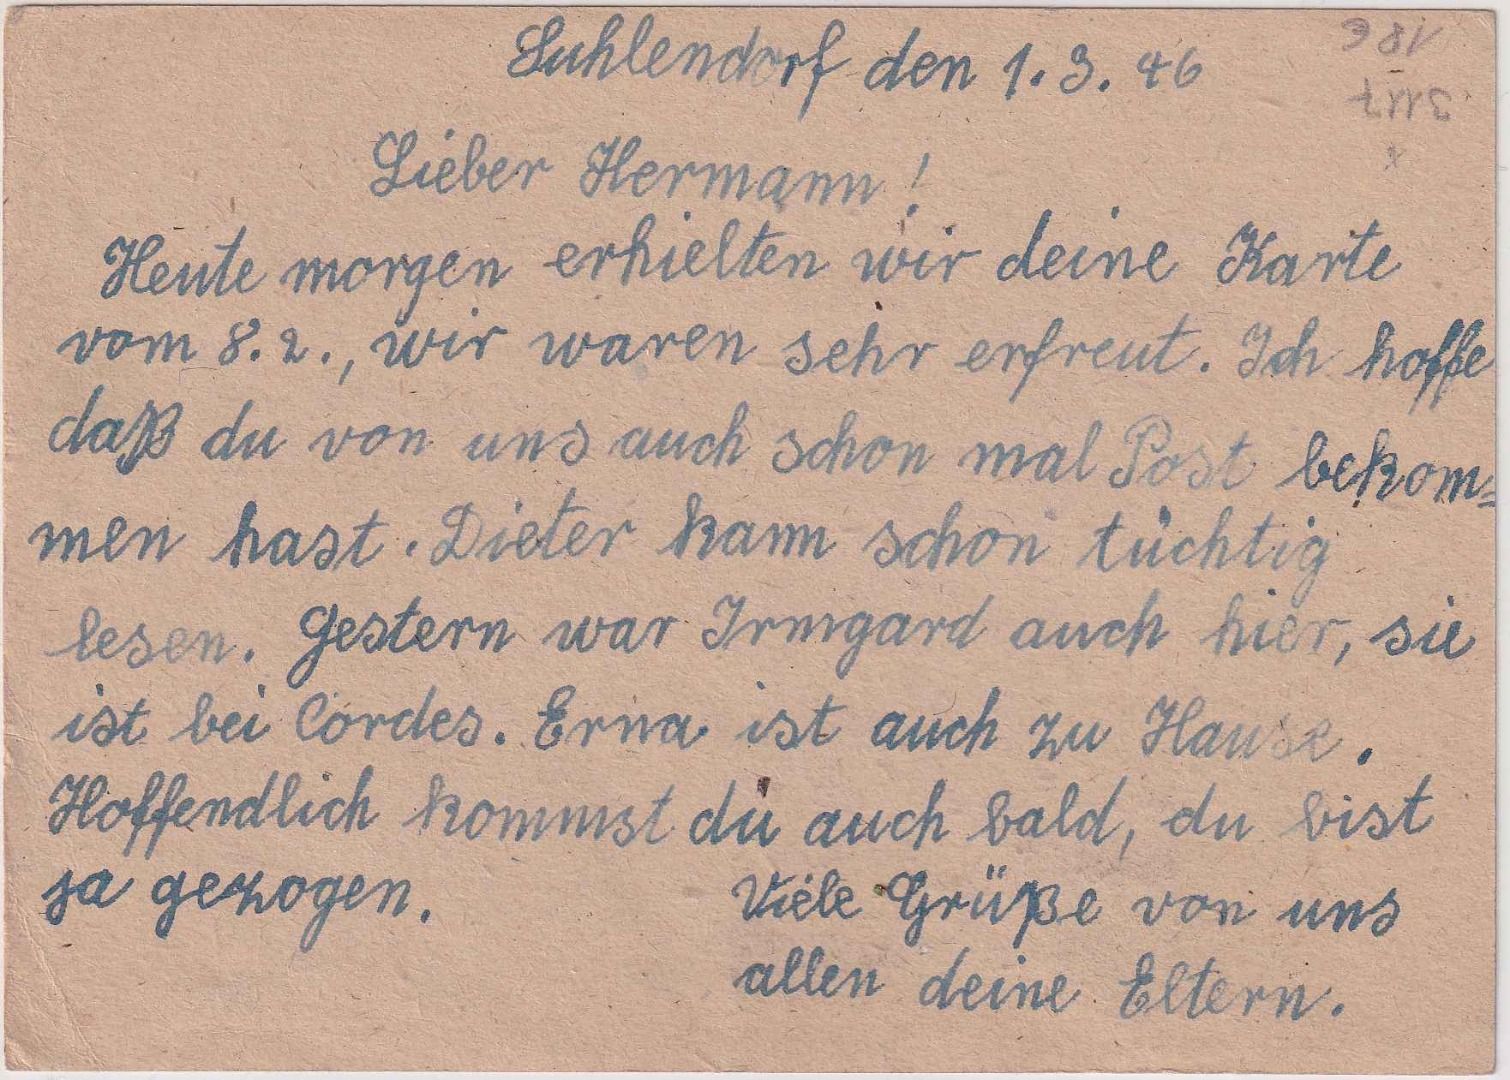 Suhlendorf den 1.3.46
Lieber Hermann!
Heute morgen erhielten wir deine Karte
vom 8.2., wir waren sehr erfreut. Ich hoffe
daß du von uns auch schon mal Post bekom=
men hast. Dieter kann schon tüchtig
lesen. Gestern war Irmgard auch hier, sie
ist bei Cordes. Erna ist auch zu Hause.
Hoffendlich kommst du auch bald, du bist
ja gezogen.
Viele Grüße von uns
allen deine Eltern.